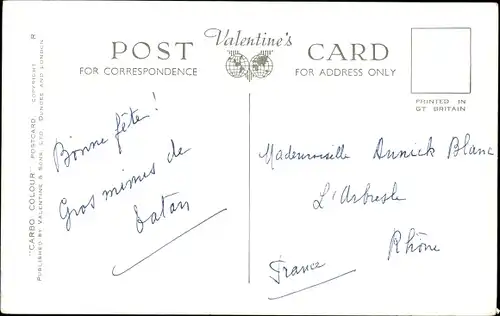 "CARBO COLOUR" POSTCARD. COPYRIGHT R
PUBLISHED BY VALENTINE & SONS, LTD., DUNDEE AND LONDON
POST Valentine's CARD
FOR CORRESPONDENCE FOR ADDRESS ONLY
PRINTED IN
GT BRITAIN
Bonne fête!
Gros mimis de
tatan
Mademoiselle Annick Blanc
L'Arbresle
Rhône
France